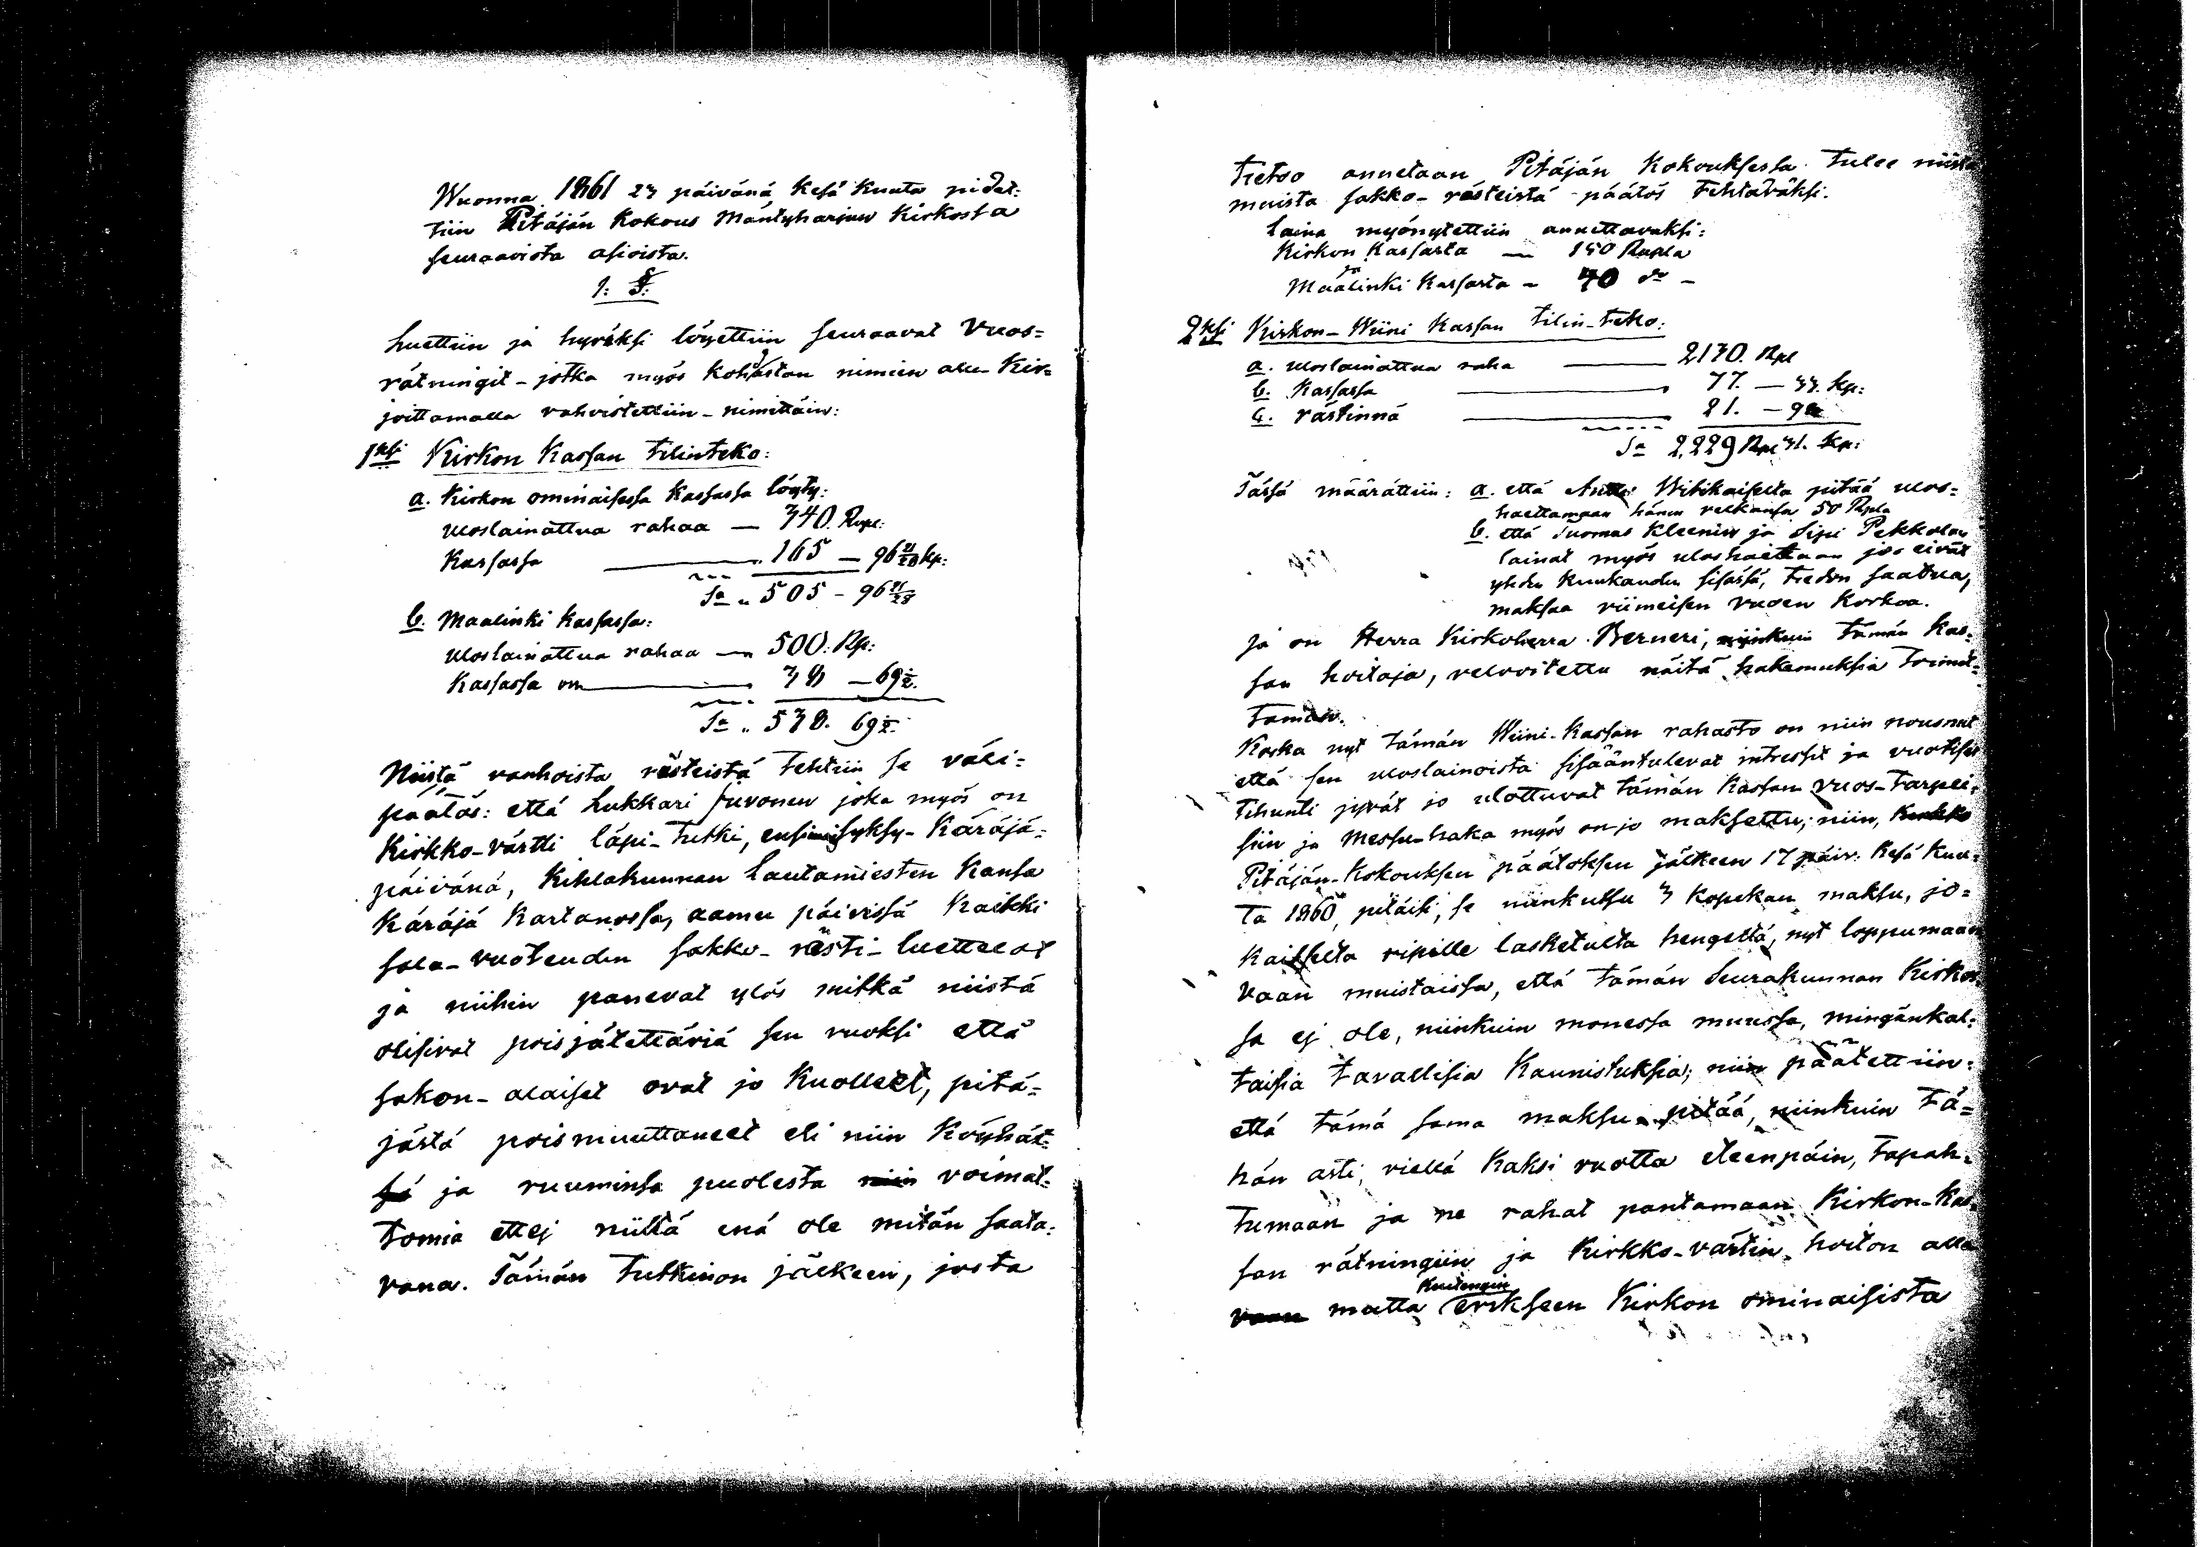 Wuonna 1861 23 päivänä Kesä Kuuta pidet:
tiin Pitäjän Kokous Mäntyharjun Kirkossa
seuraavista asioista.
1: §:
Luettiin ja hyväksi löyettiin seuraavat Vuos=
rätningit – jotka myös kohdastan nimien alle Kir=
joittamalla vahvistettiin – nimittäin:
1ksi Kirkon Kassan tilinteko:
a. Kirkon ominaisessa Kassassa löyty:
uloslainattua rahaa — 340. Rupl:
Kassassa — 165 — 96 21/28 kp:
Sa „ 505 – 96 21/28
b. Maalinki Kassassa:
uloslainattua rahaa — 500: Rp:
Kassassa on — 38 — 69 1/2.
Sa „ 538. 69 1/2.
Niistä vanhoista rästeistä tehtiin se väli=
päätös: että Lukkari Juvonen joka myös on
Kirkko-värtti läpi-tutki, ensimäisyksy-Käräjä=
päivänä, Kihlakunnan Lautamiesten Kansa
Käräjä Kartanossa, aamu päivissä Kaikki
sala-vuoteuden sakko-rästi-luettelot
ja niihin panevat ylös mitkä niistä
olisivat poisjätettäviä sen vuoksi että
sakon-alaiset ovat jo Kuolleet, pitä=
jästä poismuuttaneet eli niin Köyhät=
sä ja ruuminsa puolesta niin voimat=
tomia ettej niiltä enä ole mitän saata=
vana. Tämän tutkinon jälkeen, josta
tietoo annetaan Pitäjän Kokouksessa tulee niistä
muista sakko-rästeistä päätös tehtäväksi.
Laina myönytettiin annettavaksi:
Kirkon Kassasta — 150 Rupla
ja
Maalinki Kassasta – 40 do –
2ksi Kirkon-Wiini Kassan tilin-teko:
a. uloslainattua raha — 2130. Rpl
b. Kassassa — 77. — 33. kp:
c. rästinnä — 21. – 98
Sa 2,229 Rpl 31. kp:
Tässä määrättiin: a. että Antti Wihikaiselta pitää ulos=
haettamaan hänen velkansa 50 Rupla
b. että Tuomas Kleenin ja Sipi Pekkolan
lainat myös uloshaetaan jos eivät
yhden Kuukauden sisässä, tiedon saatua,
maksaa viimeisen vuoen Korkoa.
ja on Herra Kirkoherra Berneri, niinkuin tämän Kas=
san hoitaja, velvoitettu näitä hakemuksia toimit=
taman.
Koska nyt tämän Wiini-Kassan rahasto on niin noussut
että sen uloslainoista sisääntulevat intressit ja vuotiset
tihunti jyvät jo ulottuvat tämän Kassan vuos-tarpei=
siin ja Messu-haka myös on jo maksettu; niin,
Pitäjän-Kokouksen päätöksen jälkeen 17 päiv: Kesä Kuu=
ta 1860, pitäisi, se niinkutsu 3 Kopekan maksu, jo=
kaiselta ripille lasketulta hengeltä, nyt loppumaan
vaan muistaissa, että tämän Seurakunnan Kirkos=
sa ej ole, niinkuin monessa muussa, mingänkal=
taisia tavallisia Kaunistuksia; niin päätettiin:
että tämä sama maksu pitää, niinkuin tä=
hän asti, vielä Kaksi vuotta eteenpäin, tapah=
tumaan ja ne rahat pantamaan Kirkon-Kas=
san rätningiin ja Kirkko-värtin hoiton alle
Kuitengin
vaan mutta erikseen Kirkon ominaisista